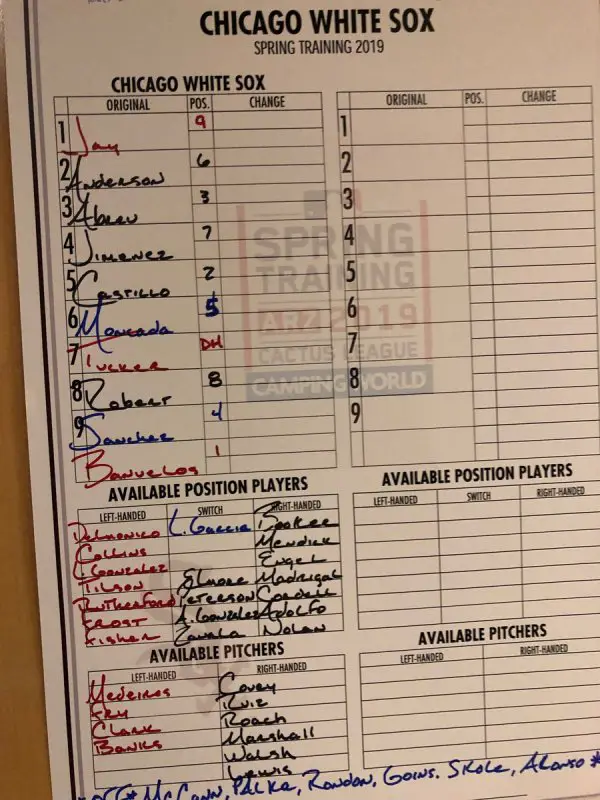 CHICAGO WHITE SOX
SPRING TRAINING 2019
CHICAGO WHITE SOX
ORIGINAL POS. CHANGE
1 Jay 9
2 Anderson 6
3 Abreu 3
4 Jimenez 7
5 Castillo 2
6 Moncada 5
7 Tucker DH
8 Robert 8
9 Sanchez 4
Banuelos 1
ORIGINAL POS. CHANGE
1
2
3
4
5
6
7
8
9
SPRING
TRAINING
ARZ 2019
CACTUS LEAGUE
CAMPING WORLD
AVAILABLE POSITION PLAYERS
LEFT-HANDED SWITCH RIGHT-HANDED
Delmonico L. Garcia Booker
Collins Mendick
L. Gonzalez Engel
Tilson Elmore Madrigal
Rutherford Peterson Cordell
Frost A. Gonzalez Adolfo
Fisher Zavala Nolan
AVAILABLE POSITION PLAYERS
LEFT-HANDED SWITCH RIGHT-HANDED
AVAILABLE PITCHERS
LEFT-HANDED RIGHT-HANDED
Medeiros Covey
Fry Ruiz
Clark Roach
Banks Marshall
Walsh
Lewis
AVAILABLE PITCHERS
LEFT-HANDED RIGHT-HANDED
*OFF* McCann, Palka, Rondon, Goins. Skole, Alonso *